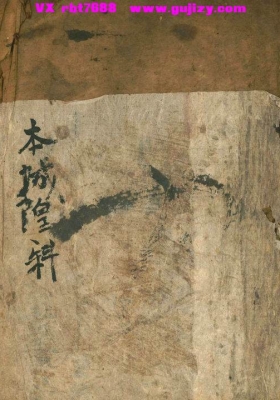 VX rbt7088 www.gujizy.com
本城隍科